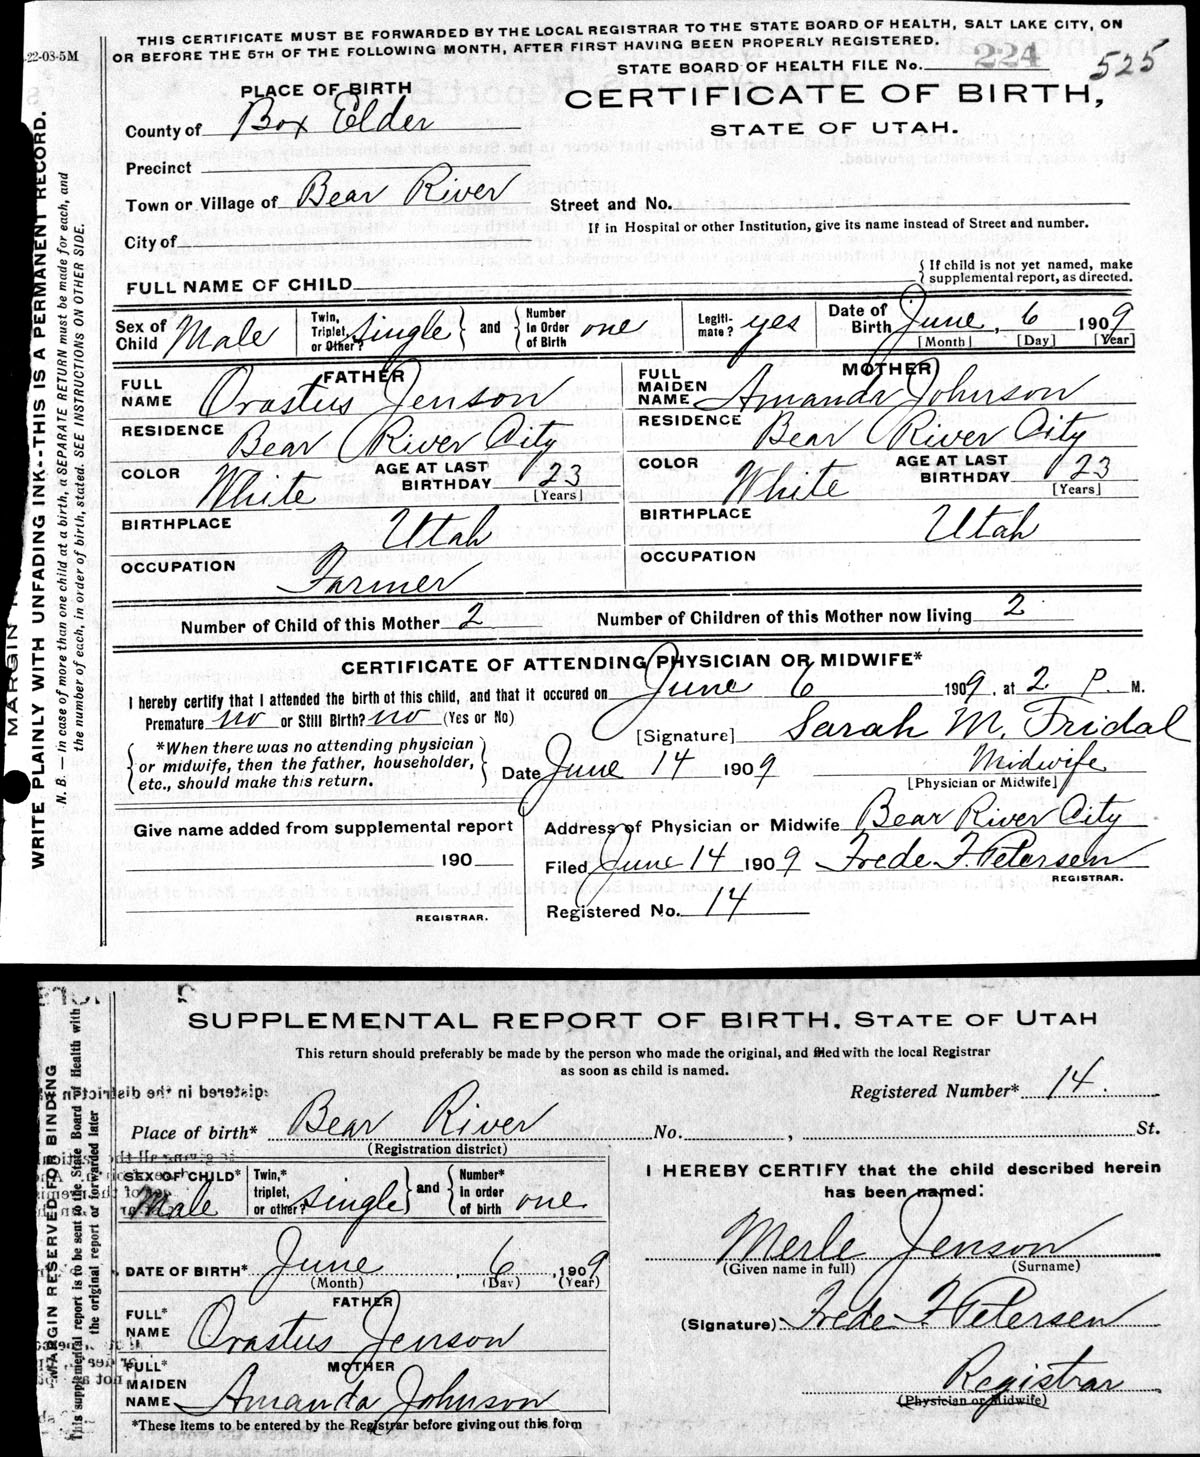 THIS CERTIFICATE MUST BE FORWARDED BY THE LOCAL REGISTRAR TO THE STATE BOARD OF HEALTH, SALT LAKE CITY, ON
OR BEFORE THE 5TH OF THE FOLLOWING MONTH, AFTER FIRST HAVING BEEN PROPERLY REGISTERED.
22-08-5M
STATE BOARD OF HEALTH FILE No. 224 525
PLACE OF BIRTH
CERTIFICATE OF BIRTH,
STATE OF UTAH.
County of Box Elder
Precinct
Town or Village of Bear River
Street and No.
If in Hospital or other Institution, give its name instead of Street and number.
City of
FULL NAME OF CHILD
{ If child is not yet named, make
supplemental report, as directed.
Sex of Child Male
Twin, Triplet, or Other? Single } and { Number In Order of Birth one
Legiti-mate? yes
Date of Birth June, 6 1909
[Month] [Day] [Year]
FATHER
FULL NAME Orastus Jenson
RESIDENCE Bear River City
COLOR White AGE AT LAST BIRTHDAY 23
[Years]
BIRTHPLACE Utah
OCCUPATION Farmer
MOTHER
FULL MAIDEN NAME Amanda Johnson
RESIDENCE Bear River City
COLOR White AGE AT LAST BIRTHDAY 23
[Years]
BIRTHPLACE Utah
OCCUPATION
Number of Child of this Mother 2 Number of Children of this Mother now living 2
CERTIFICATE OF ATTENDING PHYSICIAN OR MIDWIFE*
I hereby certify that I attended the birth of this child, and that it occured on June 6 1909, at 2 P. M.
Premature no or Still Birth? no (Yes or No)
[Signature] Sarah M. Fridal
{ *When there was no attending physician
or midwife, then the father, householder,
etc., should make this return. }
Date June 14 1909 Midwife
[Physician or Midwife]
Give name added from supplemental report
190
REGISTRAR.
Address of Physician or Midwife Bear River City
Filed June 14 1909 Frede F. Petersen
REGISTRAR.
Registered No. 14
MARGIN
WRITE PLAINLY WITH UNFADING INK--THIS IS A PERMANENT RECORD.
N. B. — In case of more than one child at a birth, a SEPARATE RETURN must be made for each, and
the number of each, in order of birth, stated. SEE INSTRUCTIONS ON OTHER SIDE.
SUPPLEMENTAL REPORT OF BIRTH, STATE OF UTAH
This return should preferably be made by the person who made the original, and filed with the local Registrar
as soon as child is named.
Registered Number* 14.
Place of birth* Bear River No. , St.
(Registration district)
SEX OF CHILD* Male
Twin,* triplet, or other? Single } and { Number* In order of birth one
DATE OF BIRTH* June, 6, 1909
(Month) (Day) (Year)
FATHER
FULL* NAME Orastus Jenson
MOTHER
FULL* MAIDEN NAME Amanda Johnson
*These items to be entered by the Registrar before giving out this form
I HEREBY CERTIFY that the child described herein
has been named:
Merle Jenson
(Given name in full) (Surname)
(Signature) Frede F Petersen
Registrar
(Physician or Midwife)
MARGIN RESERVED FOR BINDING
This supplemental report is to be sent to the State Board of Health with
the original report or forwarded later